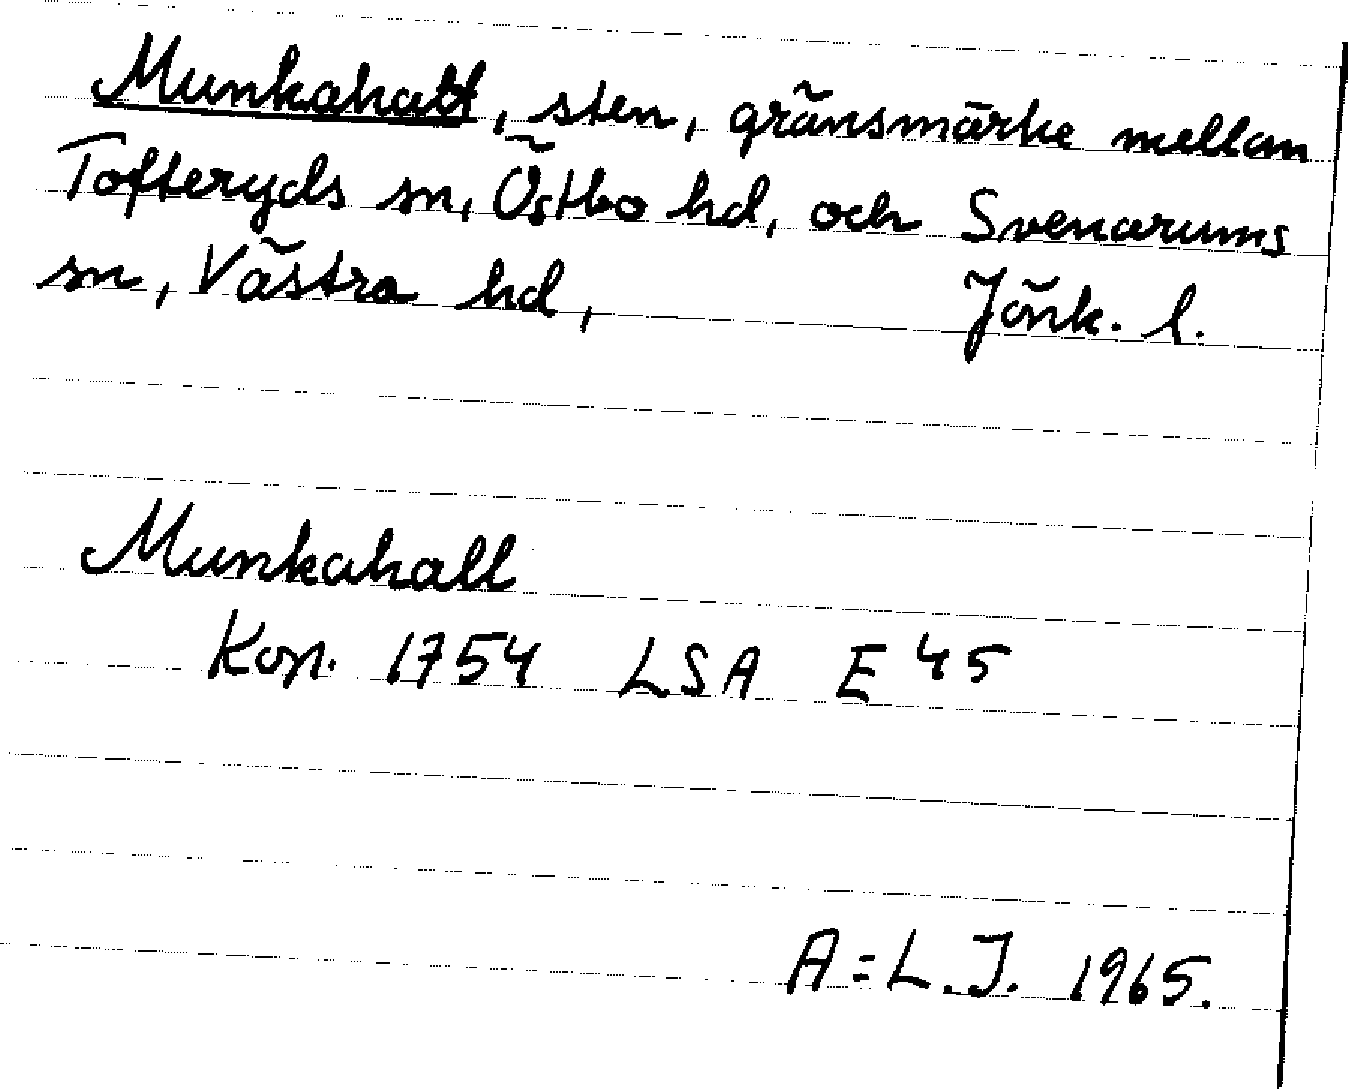 Munkahatt, sten, gränsmärke mellan
Tofteryds sn, Östbo hd, och Svenarums
sn, Västra hd, Jönk. l.
Munkahall
Kop. 1754 LSA E 45
A=L.J. 1965.